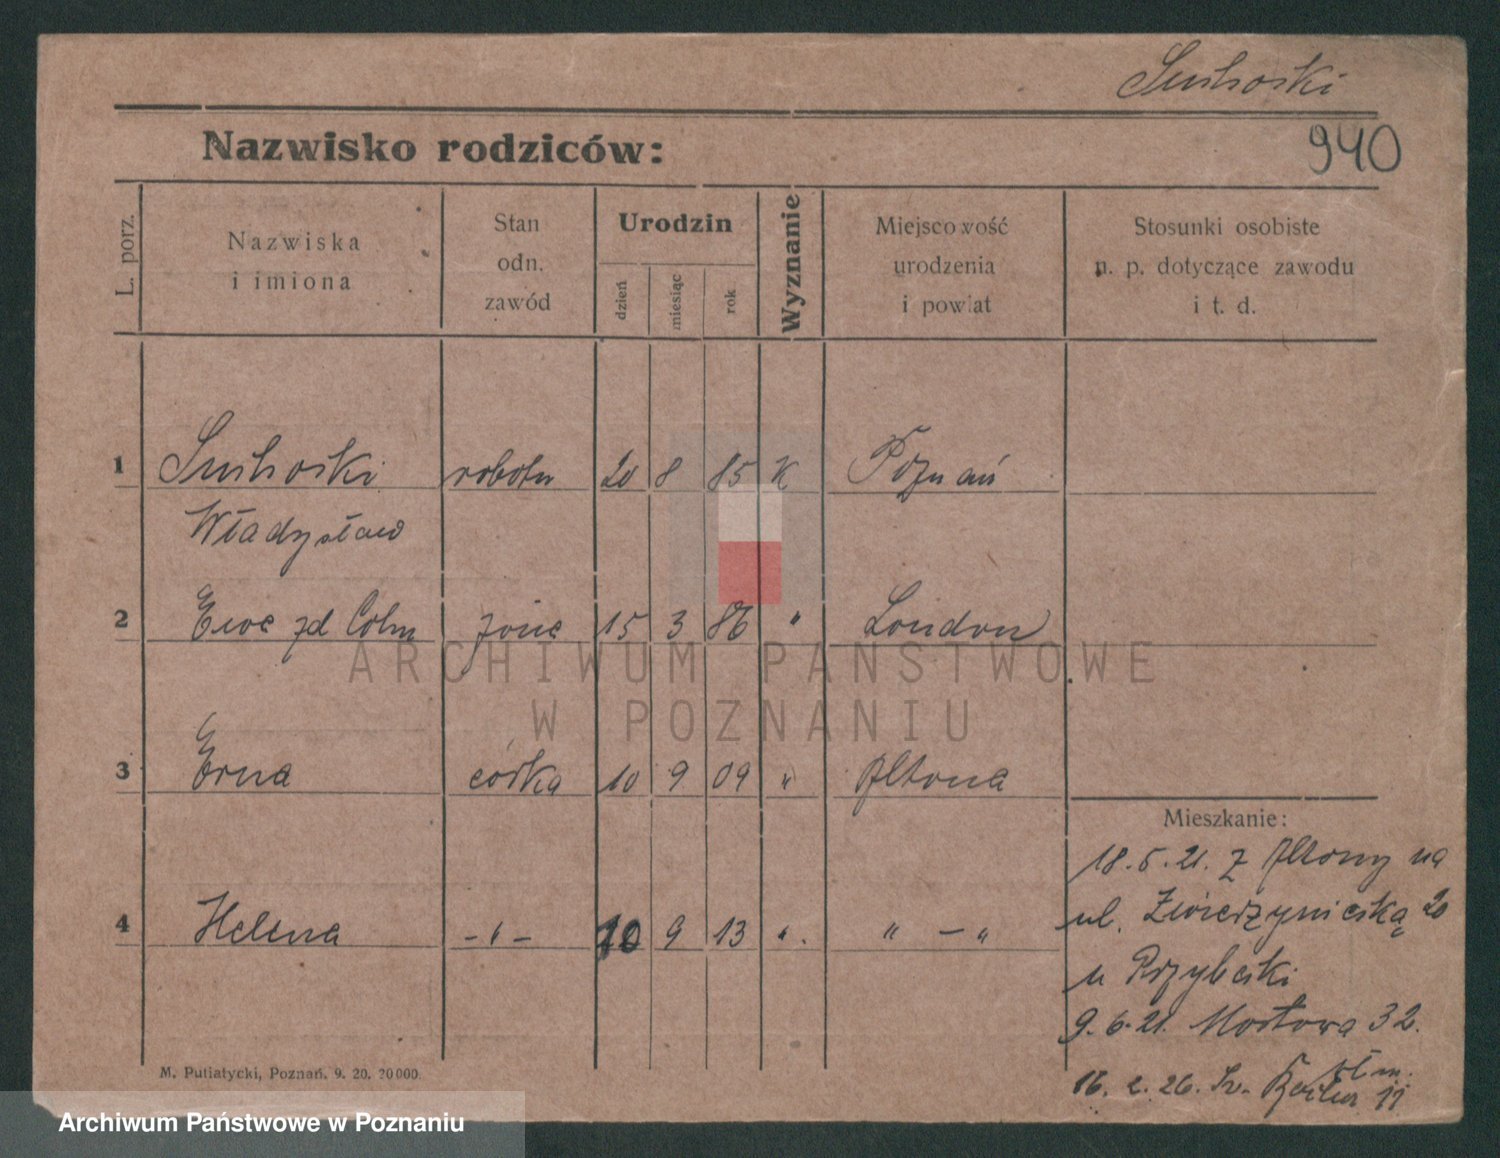 Suchorski
940
Nazwisko rodziców:
L. porz.
Nazwiska
i imiona
Stan
odn.
zawód
Urodzin
dzień
miesiąc
rok
Wyznanie
Miejscowość
urodzenia
i powiat
Stosunki osobiste
n. p. dotyczące zawodu
i t. d.
1 Suchorski robotn 20 8 85 K Poznań
Władysław
2 Ewa zd Cohn żona 15 3 86 " London
ARCHIWUM PAŃSTWOWE
W POZNANIU
3 Erna córka 10 9 09 " Altona
4 Helena – " – 10 9 13 " . " – "
Mieszkanie:
18.5.21. z Altony na
ul. Zwierzyniecką 20
u Przybylski
9.6.21. Mostowa 32.
16. 2. 26. Św. 11
M. Putiatycki, Poznań. 9. 20. 20000.
Archiwum Państwowe w Poznaniu